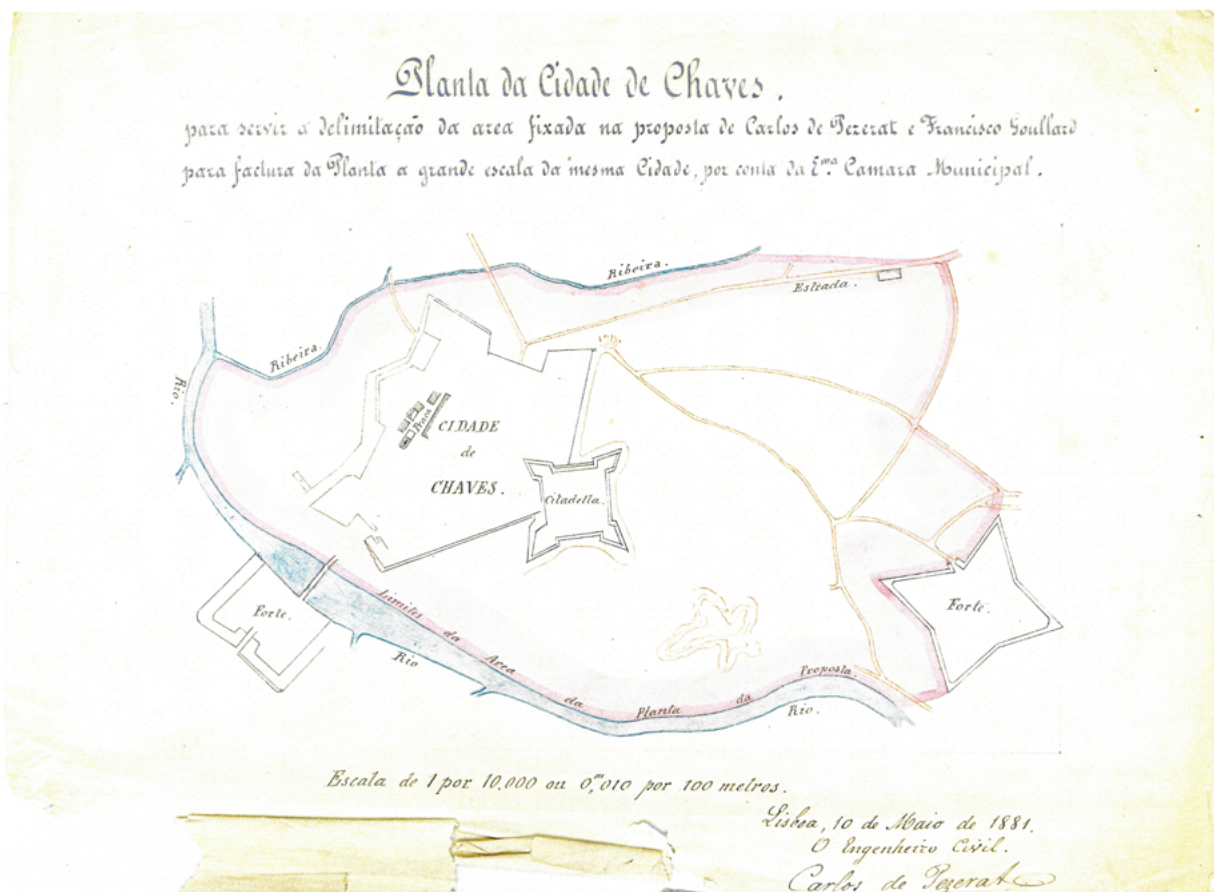 Planta da Cidade de Chaves.
para servir a delimitação da area fixada na proposta de Carlos de Pezerat e Francisco Goullard
para factura da Planta a grande escala da mesma Cidade, por conta da E.ma Camara Municipal.
Ribeira.
Estrada.
Ribeira.
Rio.
Praca
CIDADE
de
CHAVES.
Citadella.
Forte.
Forte.
Limites da Area da Planta da Proposta.
Rio
Rio.
Escala de 1 por 10,000 ou 0,m010 por 100 metros.
Lisboa, 10 de Maio de 1881.
O Engenheiro Civil.
Carlos de Pezerat